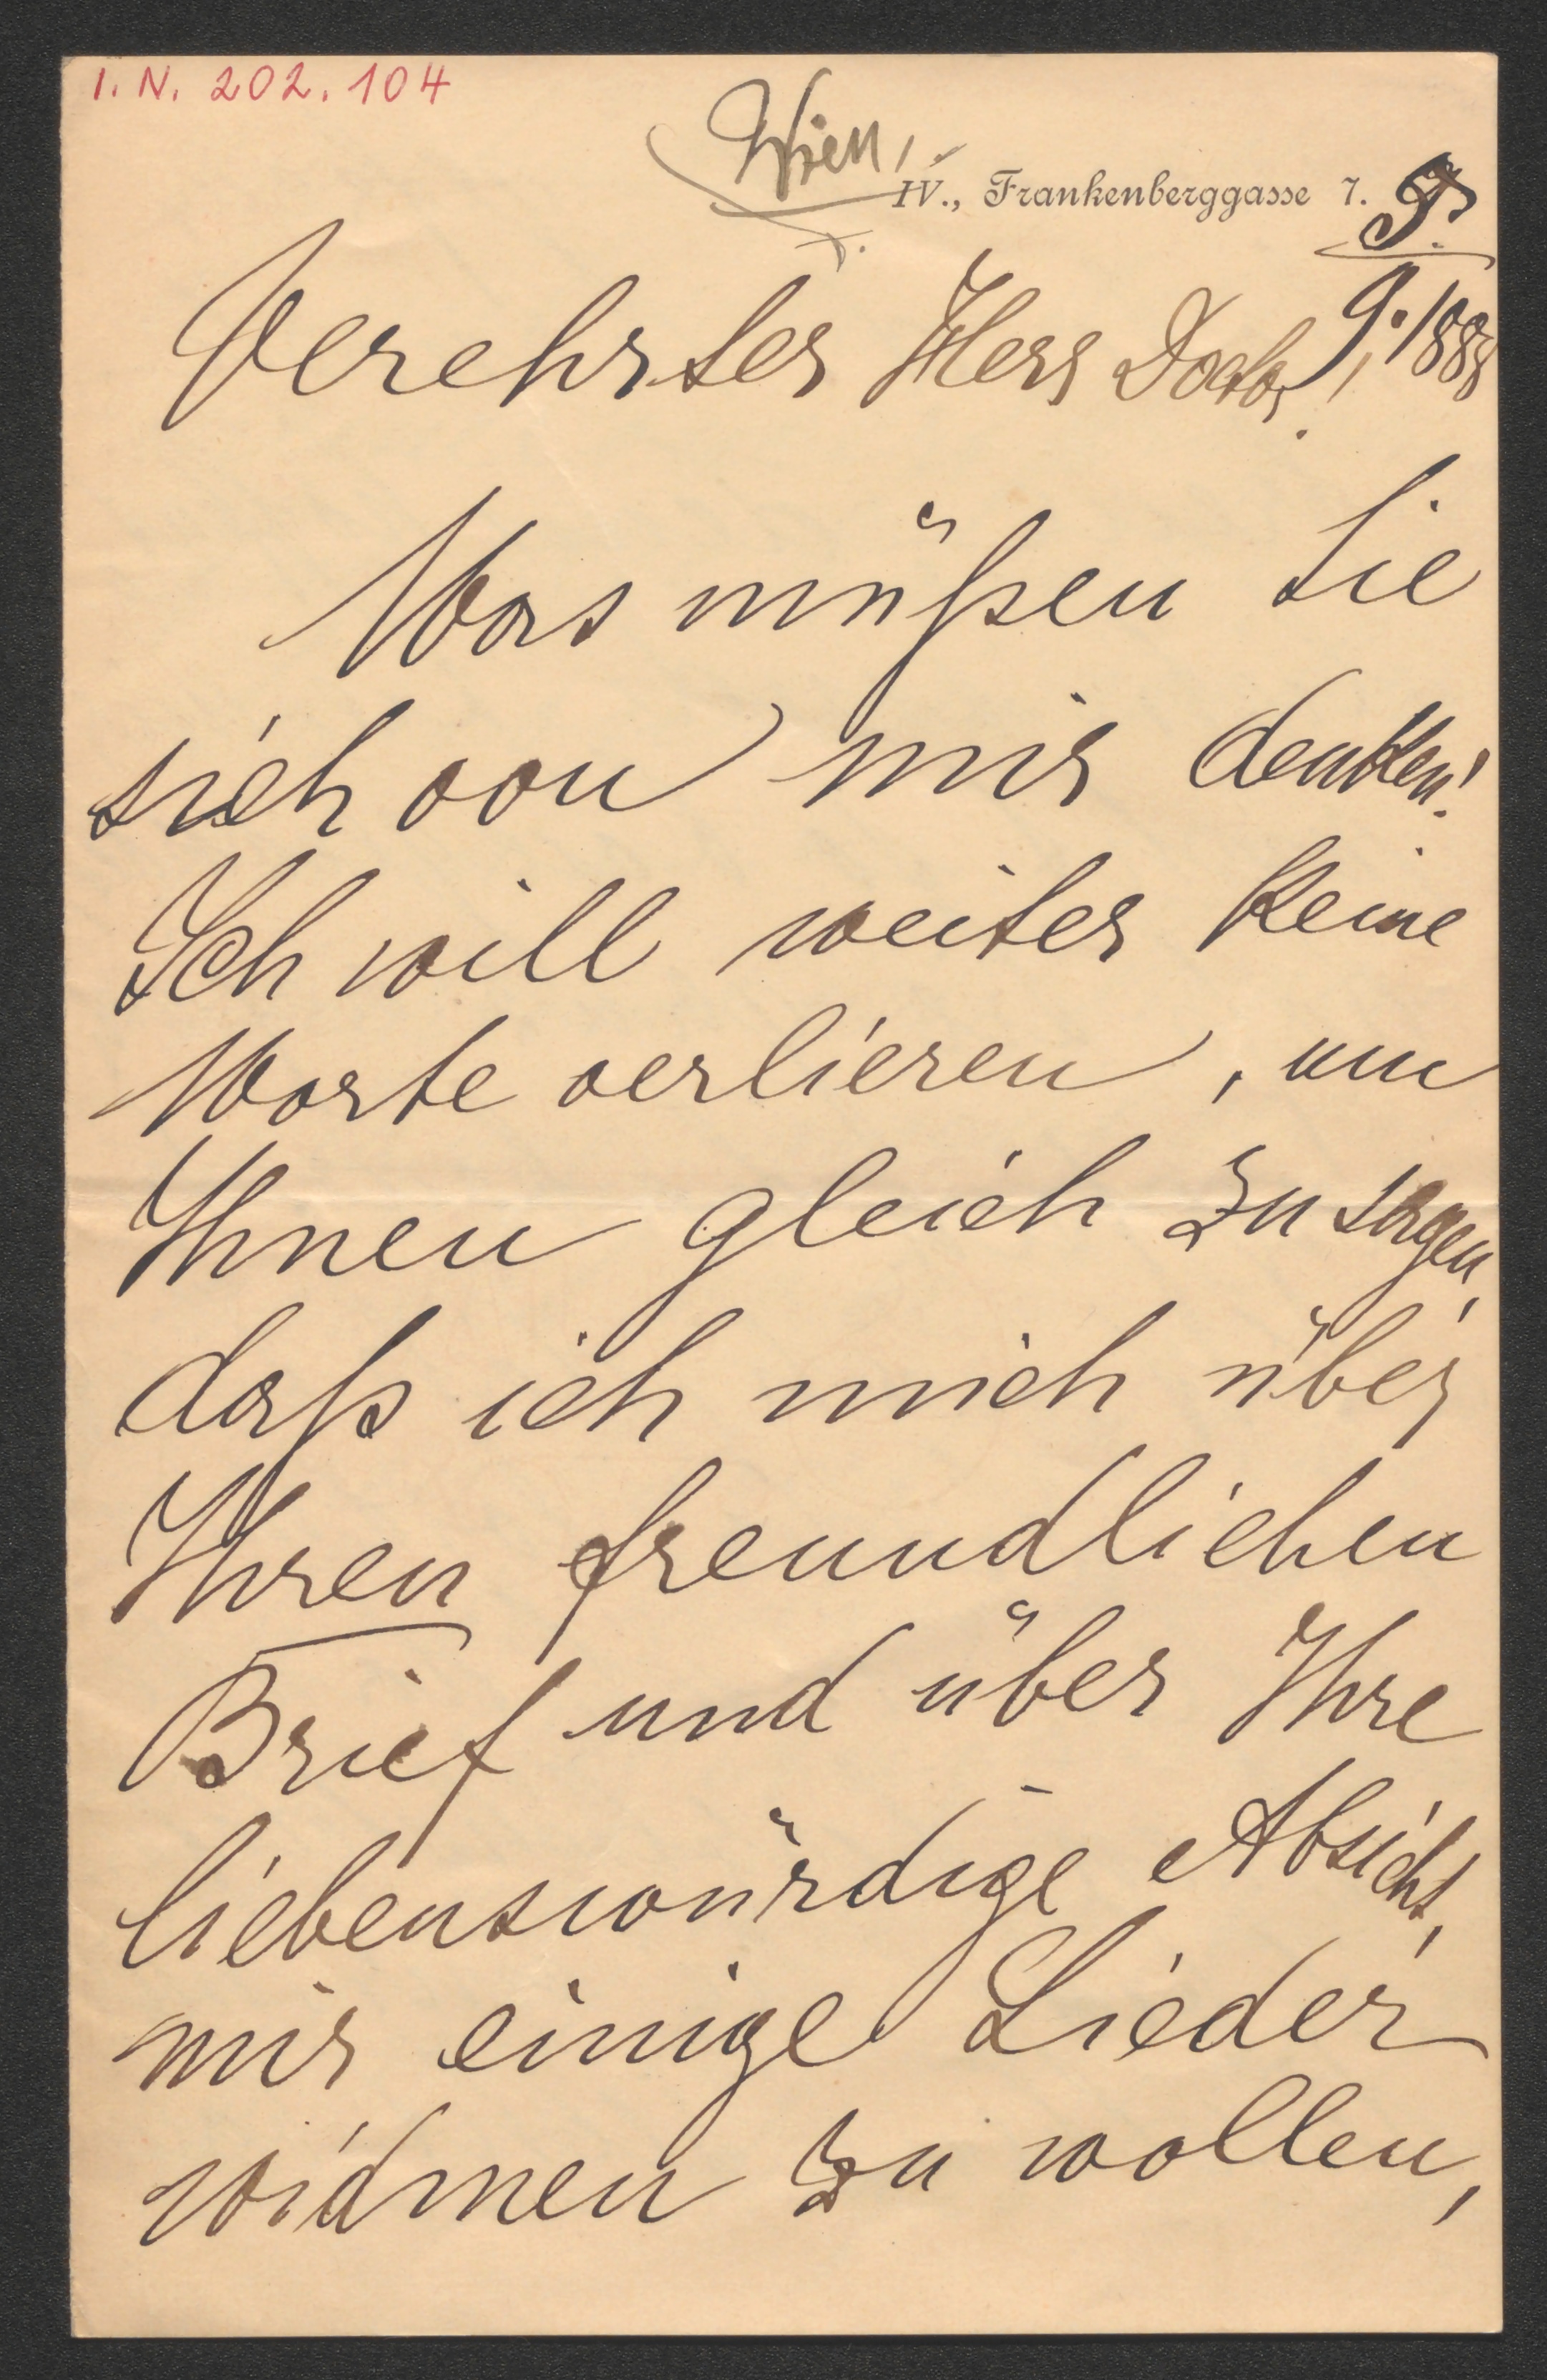 I. N. 202.104
Wien,
IV., Frankenberggasse 7.
9. 1888
Verehrter Herr Doctor!
Was müßen Sie
sich von mir denken!
Ich will weiter keine
Worte verlieren, um
Ihnen gleich zu sagen,
daß ich mich über
Ihren freundlichen
Brief und über Ihre
liebenswürdige Absicht,
mir einige Lieder
widmen zu wollen,